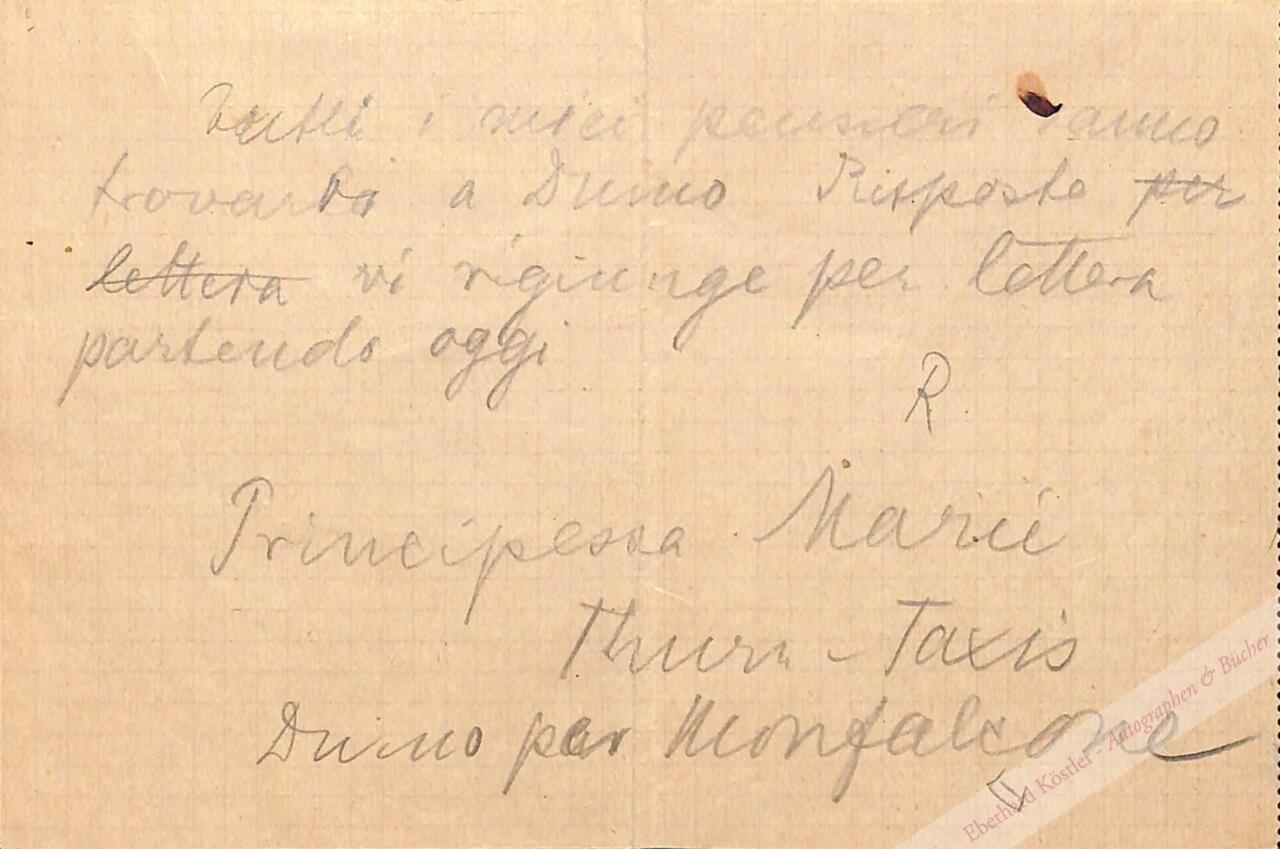 Tutti i miei pensieri vanno
trovarvo a Duino Risposta per
lettera vi rigiunge per lettera
partendo oggi
R.
Principessa Marie
Thurn-Taxis
Duino per Monfalcone
Eberhard Köstler - Autographen & Bücher